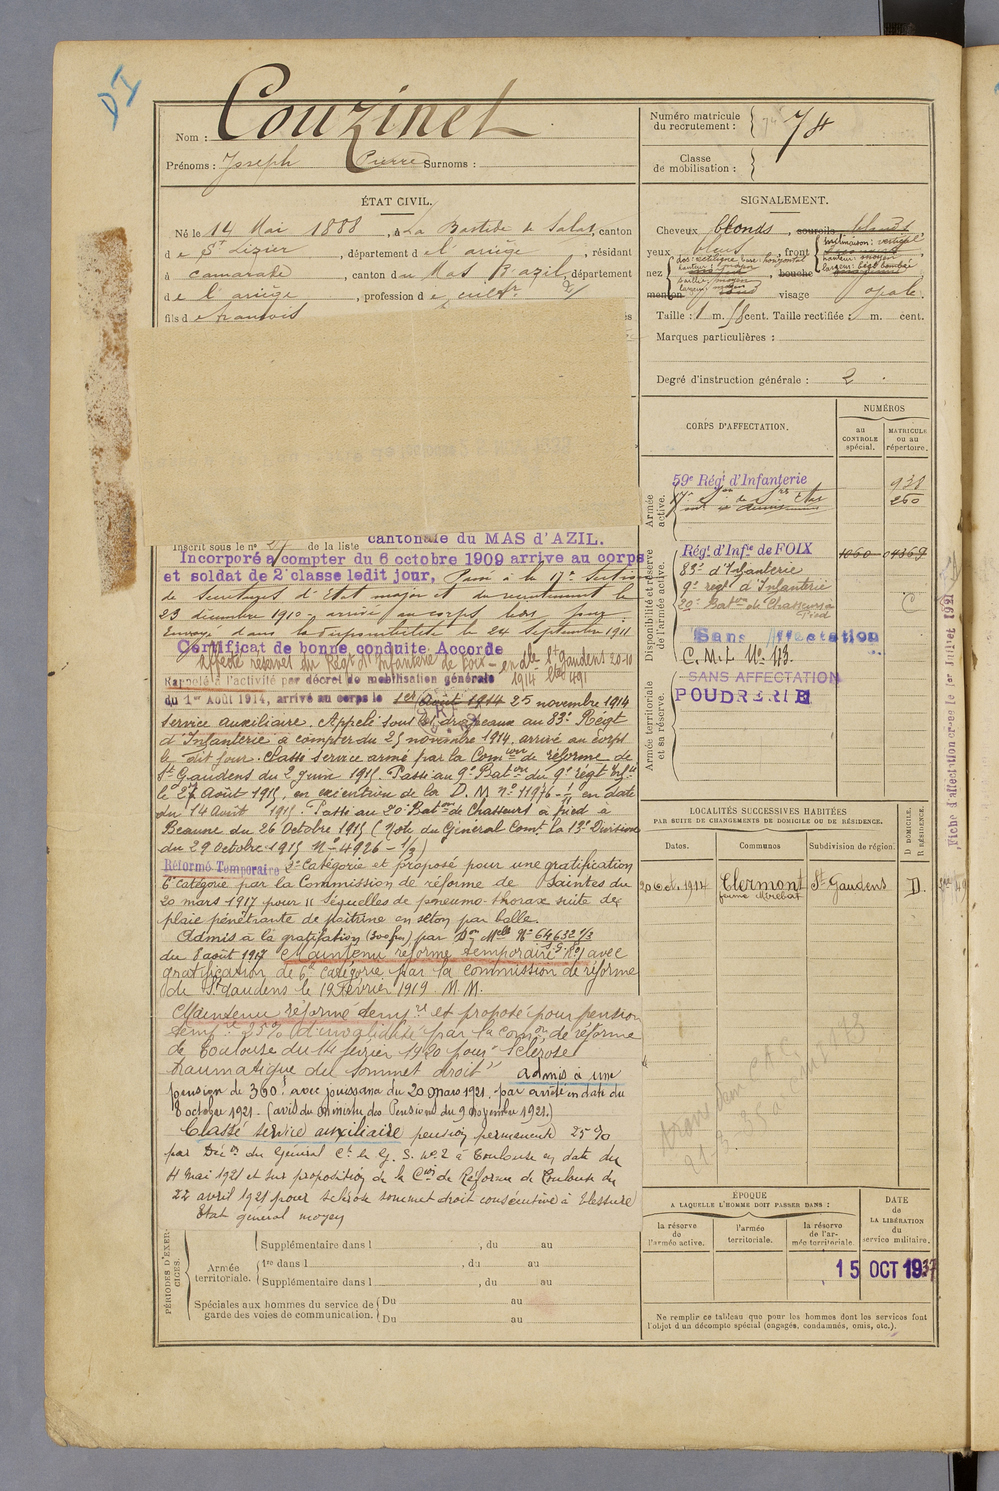 DI
Couzinet
Nom :
Prénoms : Joseph Pierre Surnoms :
Numéro matricule du recrutement : 74
Classe de mobilisation :
ÉTAT CIVIL.
Né le 14 Mai 1888, à La Bastide de Salat, canton
de St Lizier, département de l'ariège, résidant
à Camarade, canton du Mas d'azil, département
de l'ariège, profession de cultr
fils de francois
SIGNALEMENT.
Cheveux blonds, sourcils
yeux bleus, front inclinaison : verticale
hauteur : moyen
largeur :
nez dos : rectiligne base : horizontal
hauteur :
saillie : moyen
largeur :
bouche
menton visage ovale
Taille : 1 m. 58 cent. Taille rectifiée : m. cent.
Marques particulières :
Degré d'instruction générale : 2
CORPS D'AFFECTATION.
NUMÉROS
au CONTROLE spécial.
MATRICULE ou au répertoire.
Armée active.
59e Régt d'Infanterie 938
260
Disponibilité et réserve de l'armée active.
Régt d'Infie de FOIX 1060 04369
83e d'Infanterie
9e régt d'Infanterie
20e Baton de Chasseurs à Pied
C
Sans Affectation
C.M.I. No 113.
Armée territoriale et sa réserve.
SANS AFFECTATION
POUDRERIE
Inscrit sous le no 27 de la liste cantonale du MAS d'AZIL.
Incorporé à compter du 6 octobre 1909 arrive au corps
et soldat de 2e classe ledit jour, Passé à la 17e Section
de Secrétaires d'Etat major et du recrutement le
23 décembre 1910 - arrivé au corps le dit jour
Envoyé dans la disponibilité le 24 Septembre 1911
Certificat de bonne conduite Accordé
affecté réservt du Régt d'Infanterie de Foix - St Gaudens 20-10 1914
Rappelé à l'activité par décret de mobilisation générale
du 1er Août 1914, arrivé au corps le 1er Août 1914 25 novembre 1914
Service auxiliaire. Appelé sous les drapeaux au 83e Régt
d'Infanterie à compter du 25 novembre 1914, arrivé au corps
le dit jour. Classé service armé par la Comon de réforme de
St Gaudens du 2 juin 1915. Passé au 9e Baton du 9e régt Infie
le 27 Août 1915, en exécution de la D.M. no 11976-1/11 en date
du 14 Août 1915. Passé au 20e Baton de Chasseurs à pied à
Beaune du 26 Octobre 1915 (Note du Général Comt la 13e Division
du 29 Octobre 1915 No 4926-1/3)
Réformé Temporaire 2e Catégorie et proposé pour une gratification
6e catégorie par la Commission de réforme de Saintes du
20 mars 1917 pour "Séquelles de pneumo-thorax suite de
plaie pénétrante de poitrine en séton par balle.
Admis à la gratification (300 frs) par Don Mlle No 64632 1/3
du 8 août 1917 Maintenu réformé temporaire No 1 avec
gratification de 6e catégorie par la commission de réforme
de St Gaudens le 12 Février 1919. M.M.
Maintenu réformé tempre et proposé pour pension
tempre 25% d'invalidité par la comon de réforme
de Toulouse du 14 fevrier 1920 pour "Sclérose
traumatique du sommet droit" admis à une
pension de 360f avec jouissance du 20 mars 1921, par arrêté en date du
8 octobre 1921 - (avis du Ministre des Pensions du 9 novembre 1921.)
Classé service auxiliaire pension permanente 25%
par Décon du Général Ct le G. S. no 2 à Toulouse en date du
4 mai 1921 et sur proposition de la Con de Réforme de Toulouse du
22 avril 1921 pour sclérose sommet droit consécutive à blessure
Etat général moyen
LOCALITÉS SUCCESSIVES HABITÉES
PAR SUITE DE CHANGEMENTS DE DOMICILE OU DE RÉSIDENCE.
Dates. Communes Subdivision de région. D. DOMICILE. R. RÉSIDENCE.
20 Oct. 1914 Clermont St Gaudens D.
ÉPOQUE
A LAQUELLE L'HOMME DOIT PASSER DANS :
la réserve de l'armée active.
l'armée territoriale.
la réserve de l'armée territoriale.
DATE de LA LIBÉRATION du service militaire.
15 OCT 1937
PÉRIODES D'EXERCICES.
Supplémentaire dans l , du au
Armée territoriale.
1re dans l , du au
Supplémentaire dans l , du au
Spéciales aux hommes du service de garde des voies de communication.
Du au
Du au
Ne remplir ce tableau que pour les hommes dont les services font
l'objet d'un décompte spécial (engagés, condamnés, omis, etc.).
Fiche d'affectation créée le 1er Juillet 1921